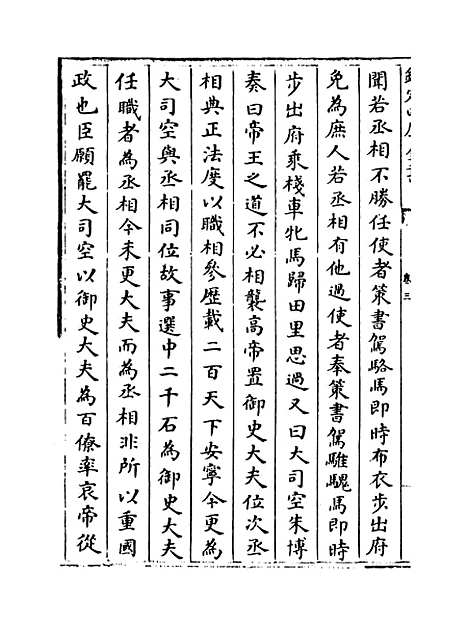 欽定四庫全書
卷三
聞若丞相不勝任使者策書駕駱馬即時布衣步出府
免為庶人若丞相有他過使者奉策書駕騅騩馬即時
步出府乘棧車牝馬歸田里思過又曰大司空朱博
奏曰帝王之道不必相襲高帝置御史大夫位次丞
相典正法度以職相參歷載二百天下安寧今更為
大司空與丞相同位故事選中二千石為御史大夫
任職者為丞相今未更大夫而為丞相非所以重國
政也臣願罷大司空以御史大夫為百僚率哀帝從